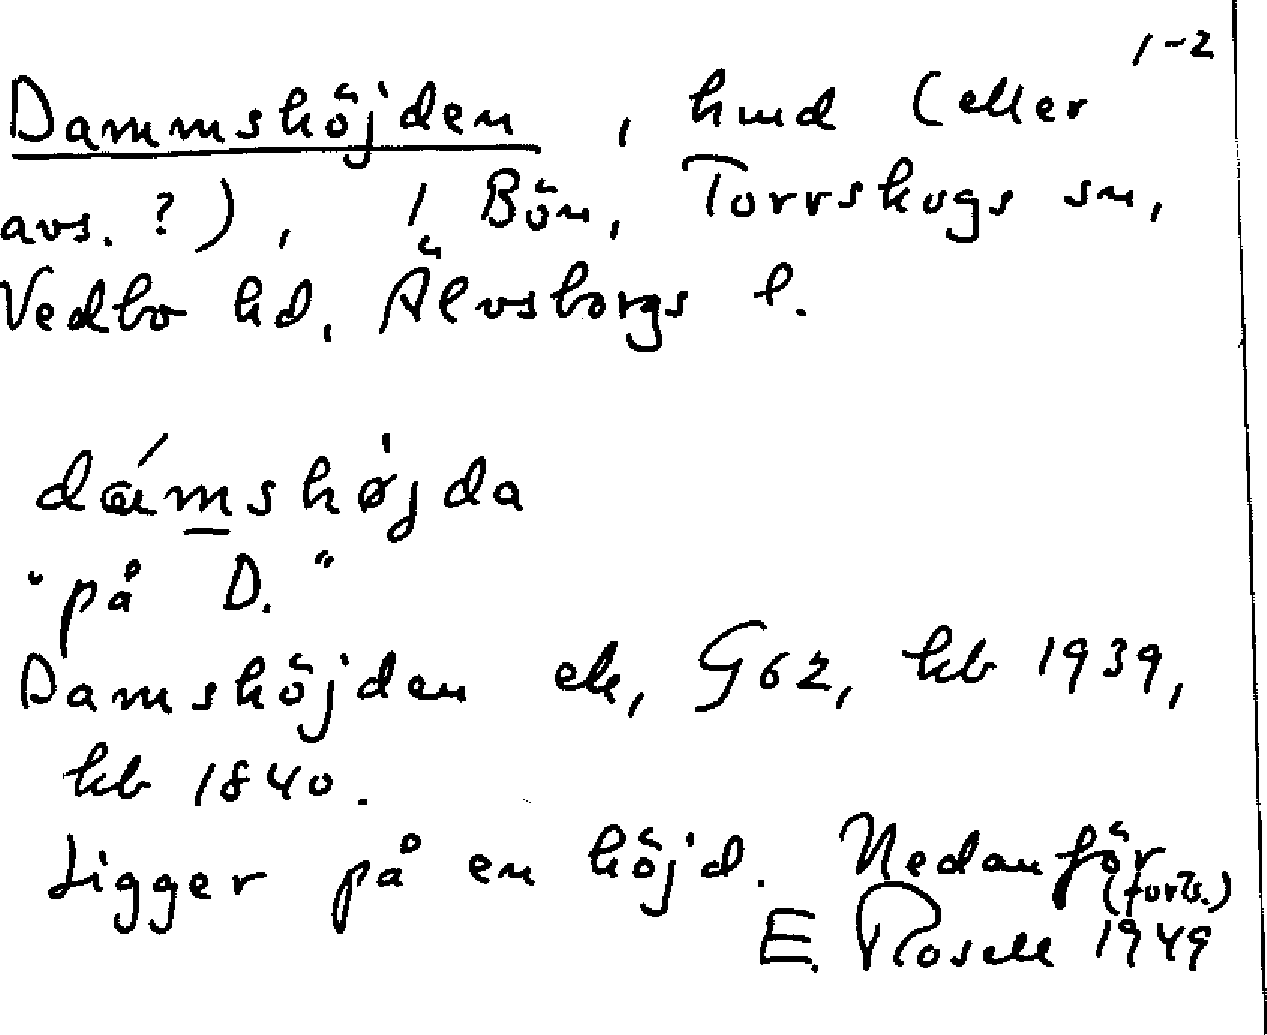 1-2
Dammshöjden, hmd (eller
avs. ?), / Bön, Torrskogs sn,
Vedbo hd, Älvsborgs l.
dǽmshøjda
"på D."
Damshöjden ek, G62, kb 1939,
kb 1840.
Ligger på en höjd. Nedanför
(forts.)
E. Rosell 1949